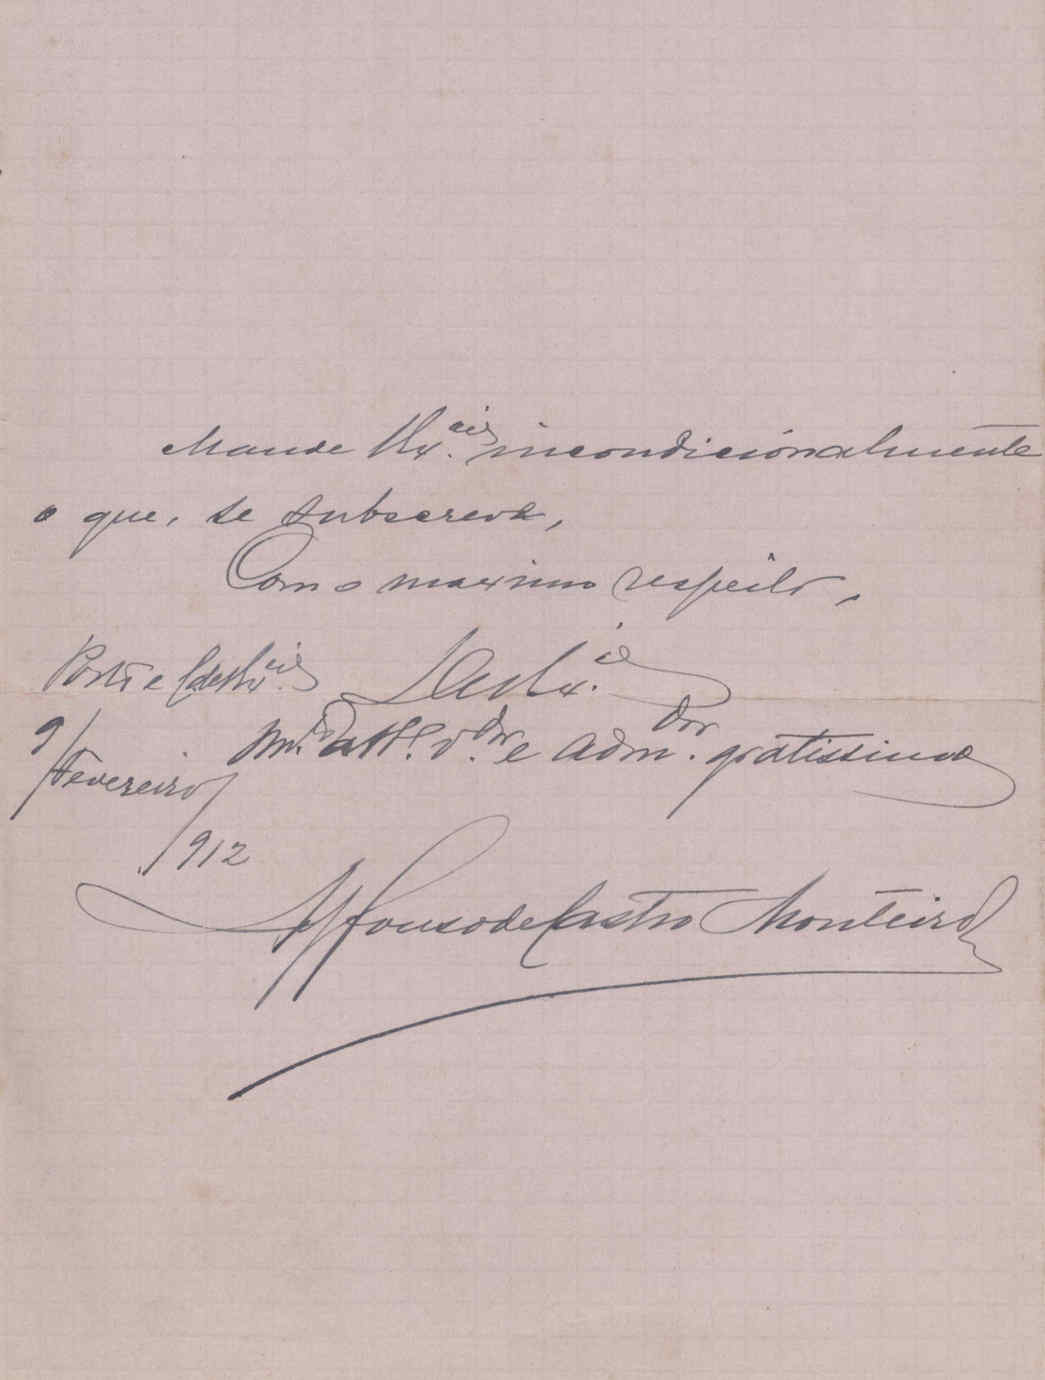 Mande V. Ex.cia incondicionalmente
o que, se subscreve,
Com o maximo respeito,
Porto e C. de V. Ex.cia
De V. Ex.cia
9/Fevereiro/912
Mt.o att.o v.dor e adm.dor gratissimo
Affonso de Castro Monteiro